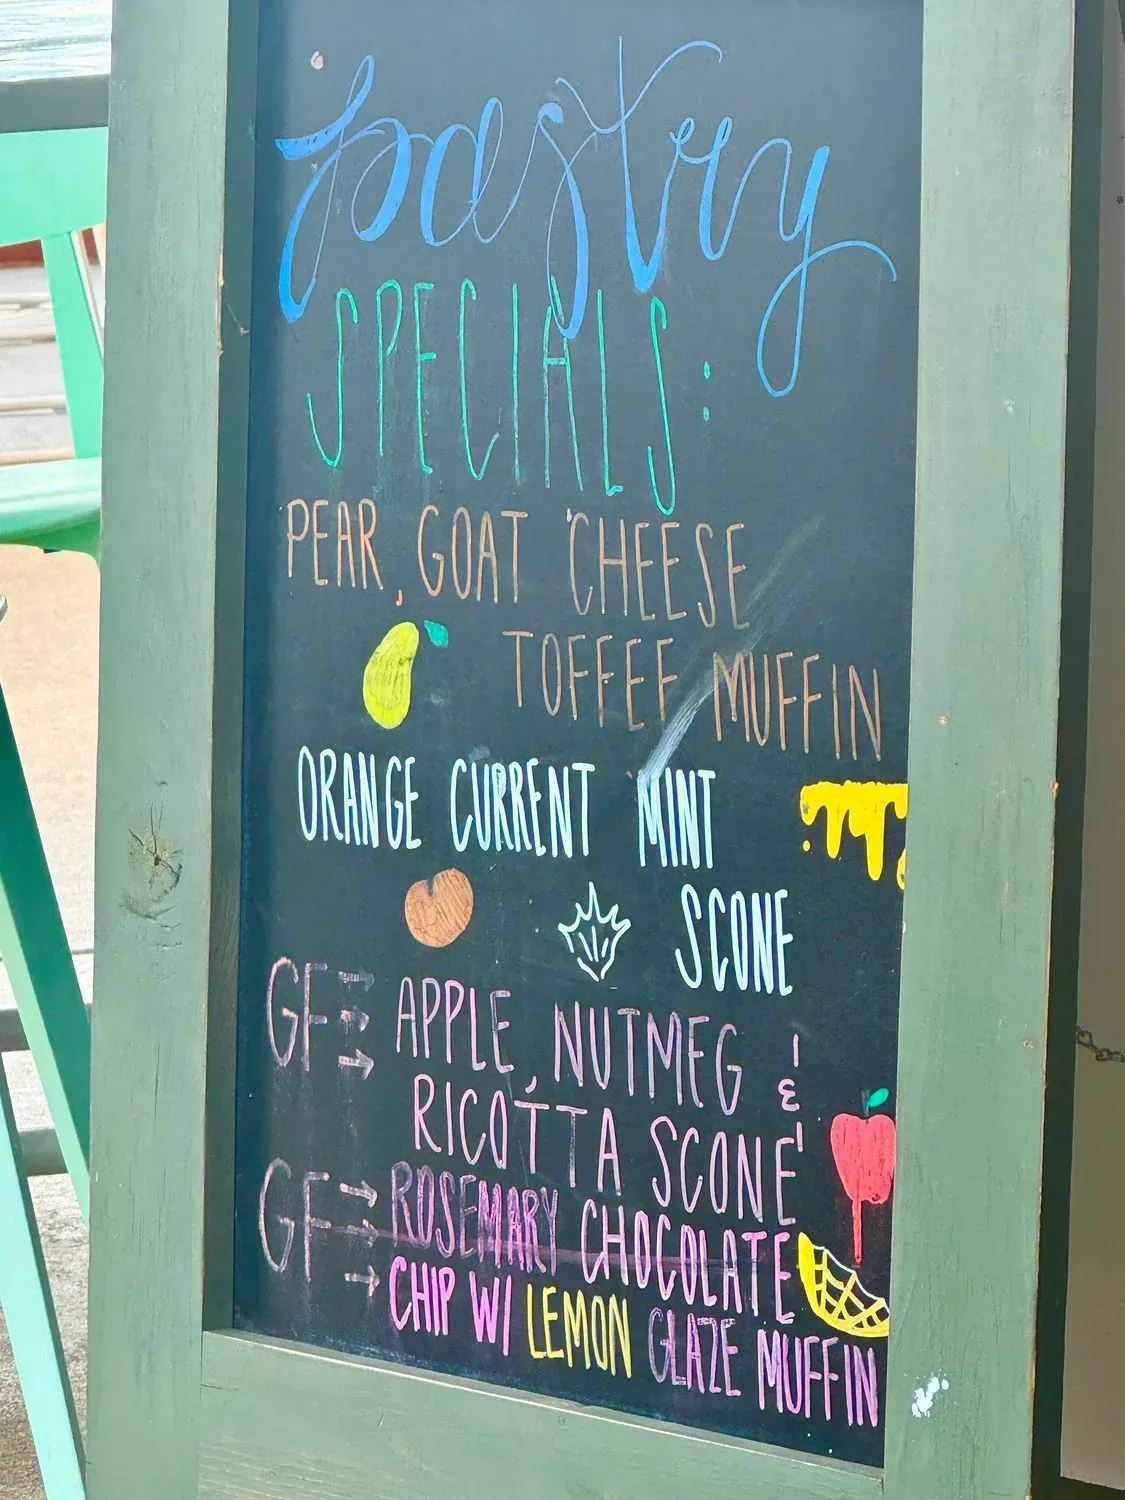 pastry
SPECIALS:
PEAR, GOAT CHEESE
TOFFEE MUFFIN
ORANGE CURRENT MINT
SCONE
GF → APPLE, NUTMEG &
RICOTTA SCONE
GF → ROSEMARY CHOCOLATE
CHIP W/ LEMON GLAZE MUFFIN